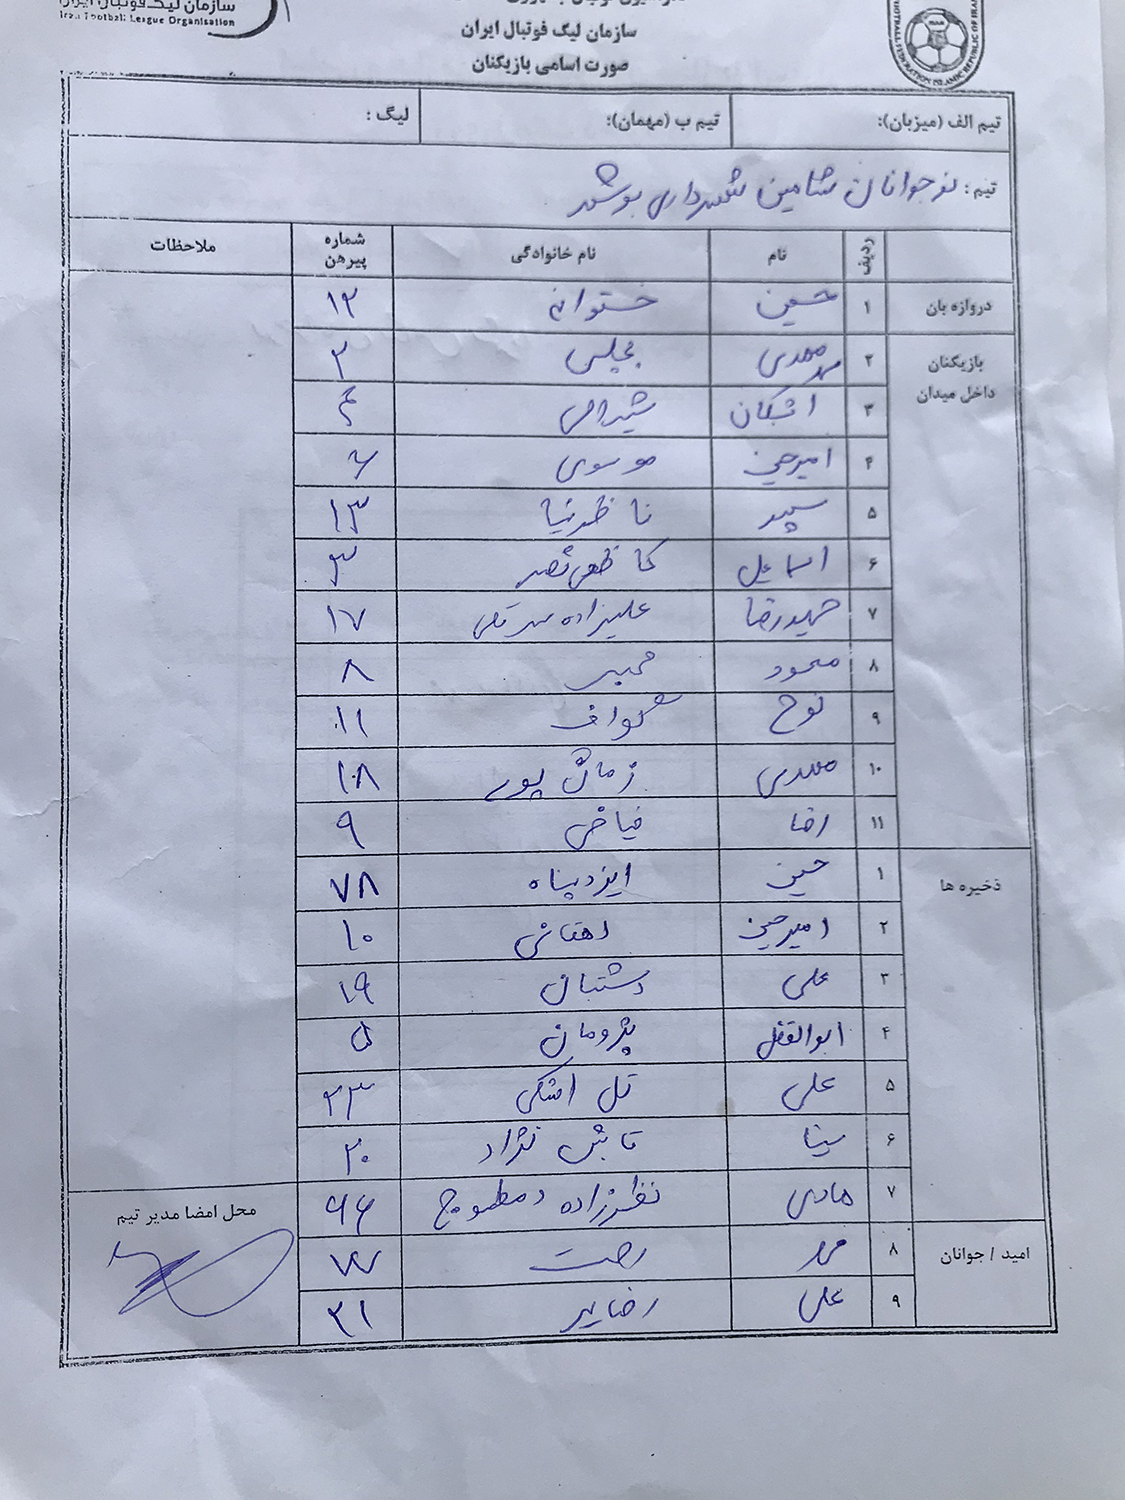 سازمان لیگ فوتبال ایران
Iran Football League Organisation
سازمان لیگ فوتبال ایران
صورت اسامی بازیکنان
FOOTBALL FEDERATION ISLAMIC REPUBLIC OF IRAN
تیم الف (میزبان): تیم ب (مهمان): لیگ :
تیم : نوجوانان شاهین شهرداری بوشهر
ردیف نام نام خانوادگی شماره پیرهن ملاحظات
دروازه بان ۱ حسین خستوانه ۱۲
بازیکنان داخل میدان ۲ مهدی مجلسی ۲
۳ اشکان ۴
۴ امیرحسین موسوی ۶
۵ سپهر ناظرنیا ۱۳
۶ اسماعیل کاظمی نصر ۳
۷ حمیدرضا علیزاده ۱۷
۸ محمود مخبر ۸
۹ نوح ۱۱
۱۰ مهدی زمان پور ۱۸
۱۱ رضا فیاضی ۹
ذخیره ها ۱ حسین ایزدپناه ۷۸
۲ امیرحسین دهقانی ۱۰
۳ علی دشتبان ۱۹
۴ ابوالفضل پژومان ۵
۵ علی ۲۳
۶ سینا تابش نژاد ۲۰
۷ هادی نظرزاده ۹۶
امید / جوانان ۸ ۷۷
۹ علی رضایی ۲۱
محل امضا مدیر تیم